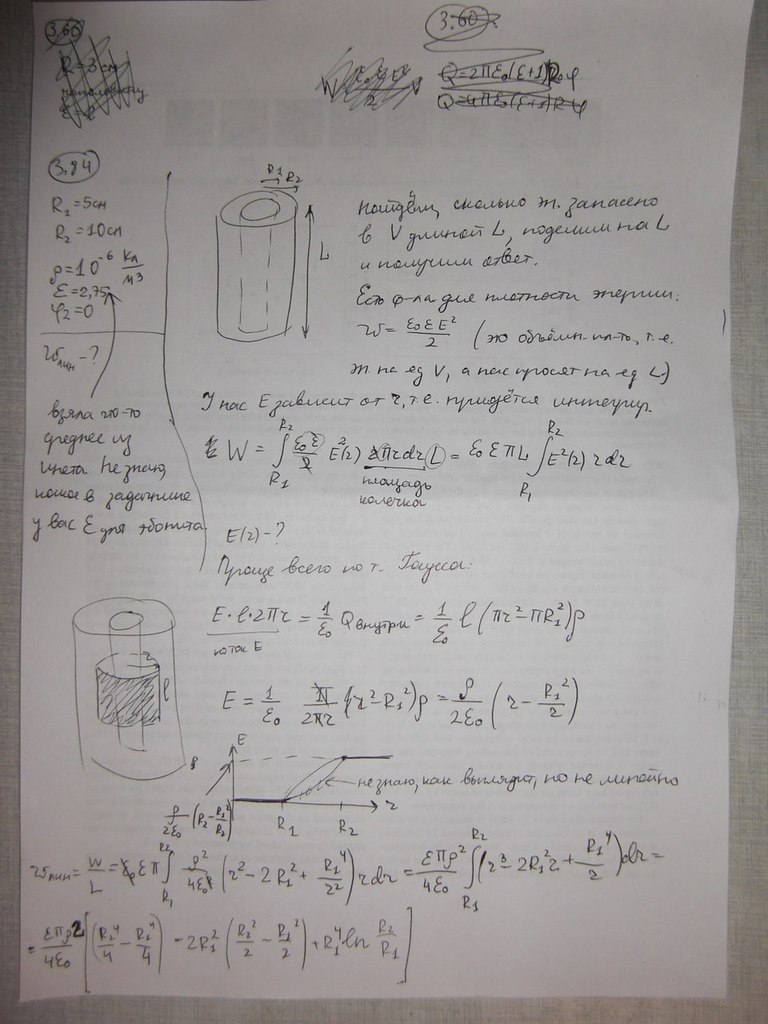 3.60
R = 3 см
3.60.
Q = 2πε₀(ε+1)R₀φ
Q = 4πε₀(ε+1)Rφ
3.84
R₁ = 5 см
R₂ = 10 см
ρ = 10⁻⁶ Кл/м³
ε = 2,75
φ₂ = 0
wлин - ?
взяла что-то
среднее из
инета. Не знаю,
какое в задачнике
у вас ε для эбонита
R₁ R₂
L
Найдём, сколько эн. запасено
в V длиной L, поделим на L
и получим ответ.
Есть ф-ла для плотности энергии:
w = ε₀εE²/2 (это объёмн. пл-ть, т.е.
эн. на ед V, а нас просят на ед L)
У нас E зависит от r, т.е. придётся интегрир.
W = ∫_{R₁}^{R₂} ε₀ε/2 E²(r) 2πr dr L = ε₀επL ∫_{R₁}^{R₂} E²(r) r dr
площадь
колечка
E(r) - ?
Проще всего по т. Гаусса:
r
l
E·l·2πr = 1/ε₀ Qвнутри = 1/ε₀ l (πr² - πR₁²)ρ
поток E
E = 1/ε₀ π/2πr (r² - R₁²)ρ = ρ/2ε₀ (r - R₁²/r)
E
не знаю, как выглядит, но не линейно
ρ/2ε₀ (R₂ - R₁²/R₂)
R₁ R₂ r
wлин = W/L = ε₀επ ∫_{R₁}^{R₂} ρ²/4ε₀² (r² - 2R₁² + R₁⁴/r²) r dr = επρ²/4ε₀ ∫_{R₁}^{R₂} (r³ - 2R₁²r + R₁⁴/r) dr =
= επρ²/4ε₀ [(R₂⁴/4 - R₁⁴/4) - 2R₁² (R₂²/2 - R₁²/2) + R₁⁴ ln R₂/R₁]